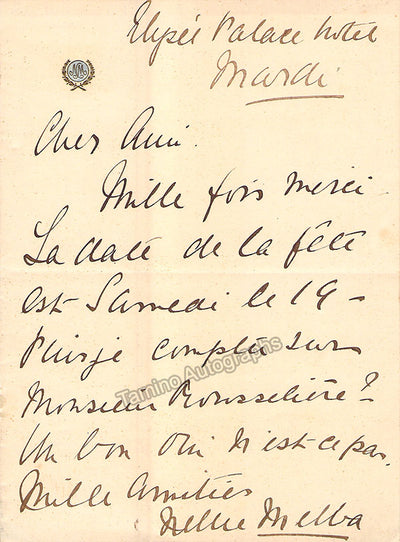 Elysée Palace hotel
Mardi
Cher Ami.
Mille fois merci
La date de la fête
est Samedi le 19 –
Puisje compter sur
Tamino Autographs
Monsieur Rousselière? –
Un bon Oui n'est-ce pas.
Mille Amitiés
Nellie Melba